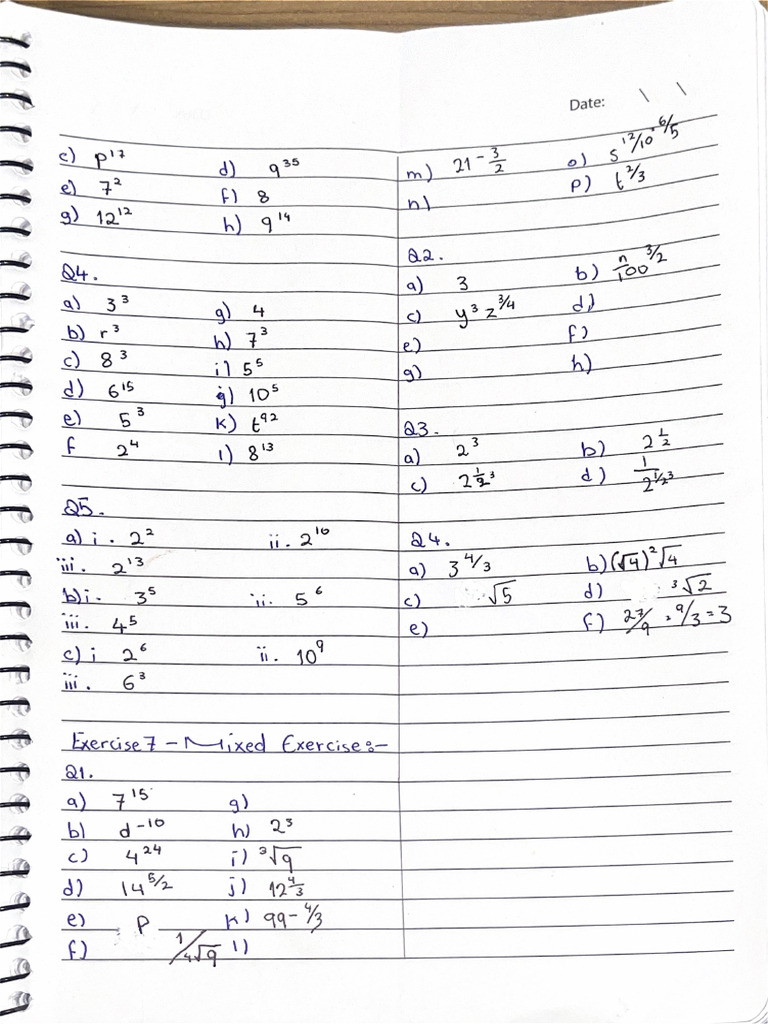 Date: \ \
c) p¹⁷ d) 9³⁵
e) 7² f) 8
g) 12¹² h) 9¹⁴
Q4.
a) 3³ g) 4
b) r³ h) 7³
c) 8³ i) 5⁵
d) 6¹⁵ j) 10⁵
e) 5³ k) t⁹²
f 2⁴ l) 8¹³
Q5.
a) i. 2² ii. 2¹⁰
iii. 2¹³
b) i. 3⁵ ii. 5⁶
iii. 4⁵
c) i 2⁶ ii. 10⁹
iii. 6³
Exercise 7 - Mixed Exercise:-
Q1.
a) 7¹⁵ g)
b) d⁻¹⁰ h) 2³
c) 4²⁴ i) ³√9
d) 14^5/2 j) 12^4/3
e) P k) 99-^4/3
f) 1/4√9 l)
m) 21-^3/2 o) s^12/10 . 6/5
n) p) t^2/3
Q2.
a) 3 b) n/100^3/2
c) y³z^3/4 d)
e) f)
g) h)
Q3.
a) 2³ b) 2^1/2
c) 2^1/2³ d) 1/2^1/2³
Q4.
a) 3^4/3 b) (√4)²√4
c) √5 d) ³√2
e) f) 27/9 = 9/3 = 3